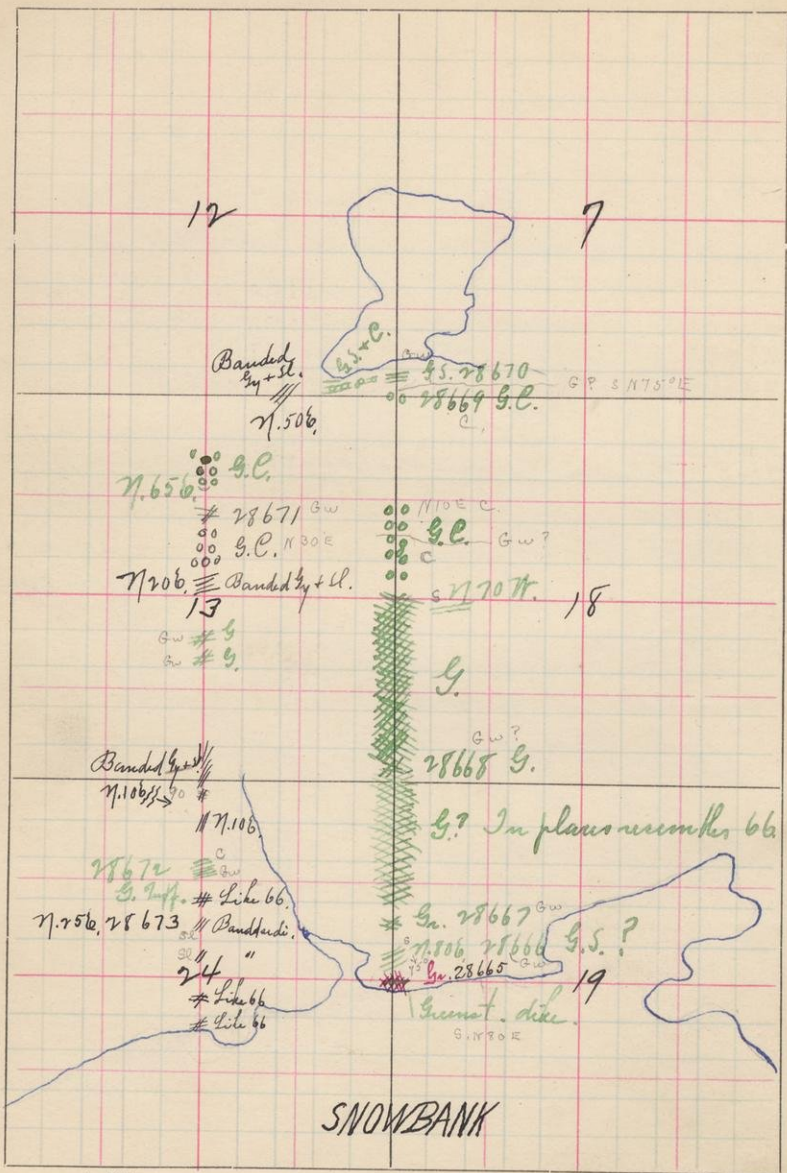 12
7
G.S. + C.
Banded
Gy + Sl.
N.50E.
Gw
G.S. 28670
G? S N75°E
28669 G.C.
C.
G.C.
N.65E.
28671 Gw
G.C. N30E
N20E. Banded Gy + Sl.
13
N10E C.
G.C.
Gw?
C
S N70W.
18
Gw G
Gw G.
G.
Gw?
28668 G.
Banded Gy + Sl.
N.10E 90
N.10E.
G? In places resembles 66
28672 C
Gw
G. Tuff.
Like 66.
N.25E, 28673
Sl
Sl "
24
Like 66
Like 66
Gr. 28667 Gw
S
N.80E, 28666 G.S.?
45°
Gr. 28665 Gw
19
Greenst. dike.
S. N80E
SNOWBANK